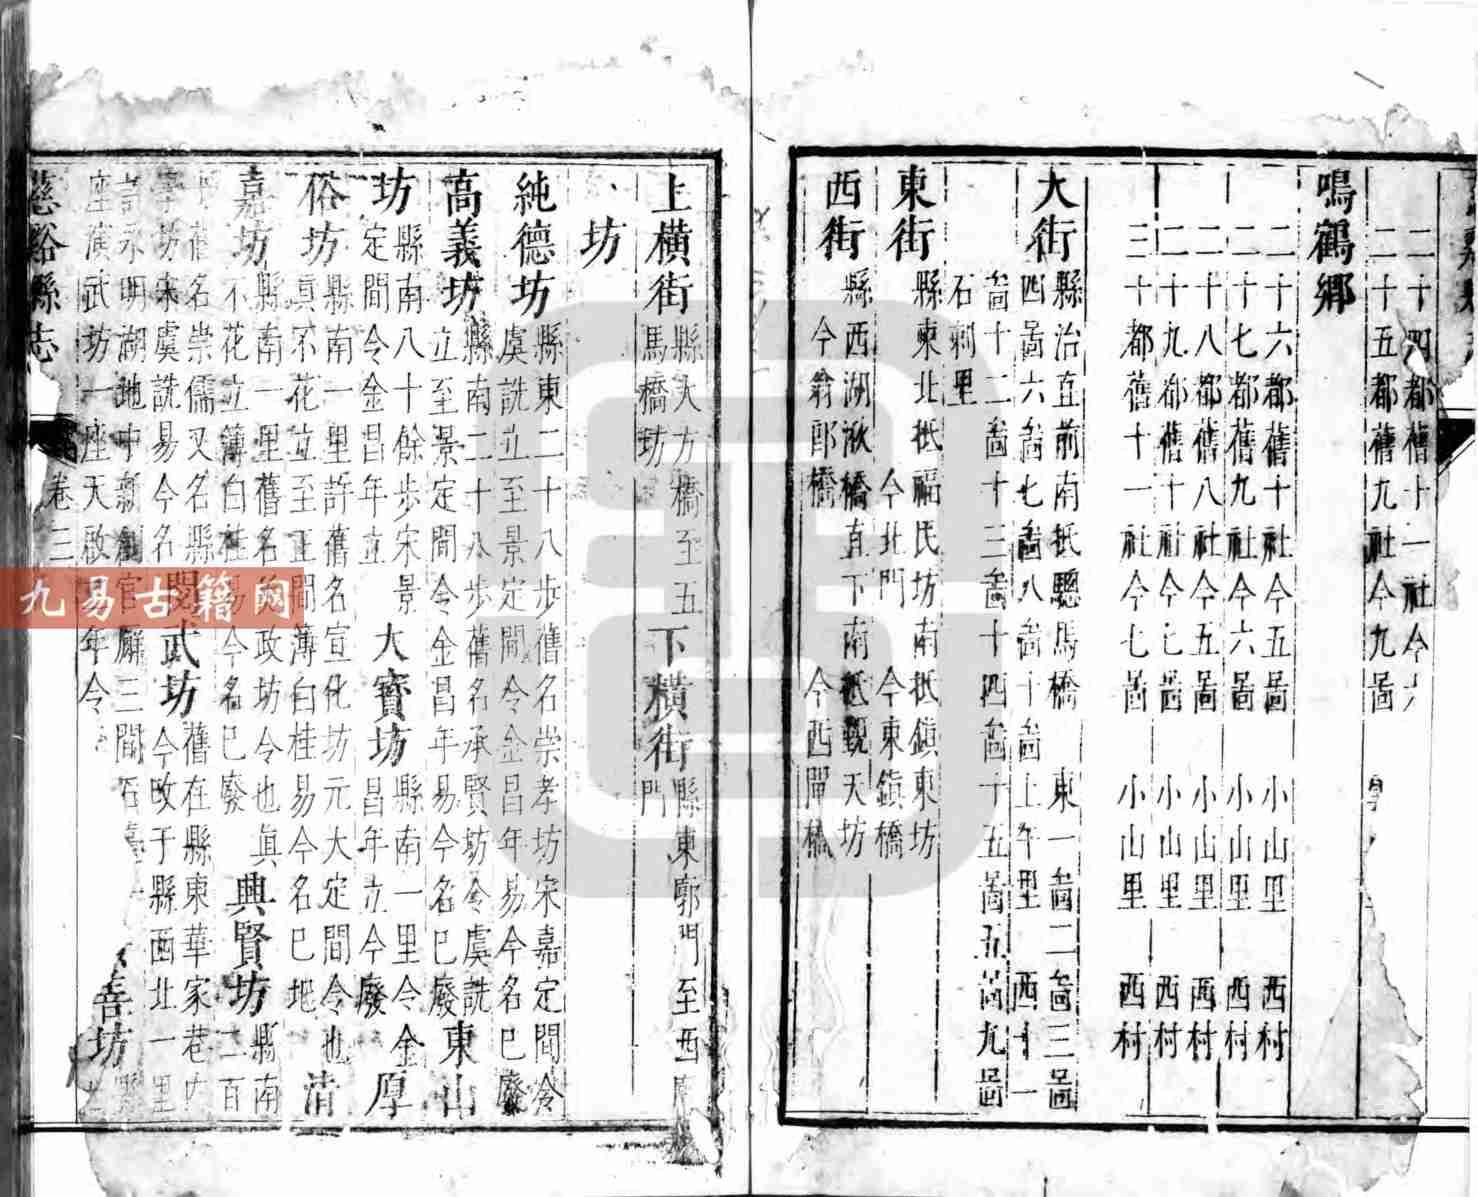 二十四都舊十一社今六
二十五都舊九社今九啚
鳴鶴鄉
二十六都舊十社今五啚 小山里 西村
二十七都舊九社今六啚 小山里 西村
二十八都舊八社今五啚 小山里 西村
二十九都舊十社今七啚 小山里 西村
三十都舊十一社今七啚 小山里 西村
大街
縣治直前南抵驄馬橋 東一啚二啚三啚
四啚六啚七啚八啚十啚 上午里 西十一
啚十二啚十三啚十四啚十五啚五啚九啚
石刺里
東街
縣東北抵福民坊南抵鎮東坊
今北門 今東鎮橋
西街
縣西湖湫橋直下南抵觀天坊
今翁郎橋 今西閘橋
上橫街
縣大方橋至五
馬橋坊
下橫街
縣東郭門至西
門
坊
純德坊
縣東二十八步舊名崇孝坊宋嘉定間令
虞詵立至景定間令金昌年易今名已廢
高義坊
縣南二十八步舊名承賢坊令虞詵
立至景定間令金昌年易今名已廢
東山
坊
縣南八十餘步宋景
定間令金昌年立
大寶坊
縣南一里令金
昌年立今廢
厚
俗坊
縣南一里許舊名宣化坊元大定間令也
真不花立至正間簿白桂易今名已地
清
嘉坊
縣南一里舊名政坊令也真
不花立簿白桂易今名已廢
興賢坊
縣南
二百
步舊名崇儒又名縣
學坊宋虞詵易今名
閱武坊
舊在縣東華家巷內
今改于縣西北一里
許永明湖地中新創官廳三間石臺
座演武坊一座天啟年令
善坊
慈谿縣志
卷三
九易古籍网